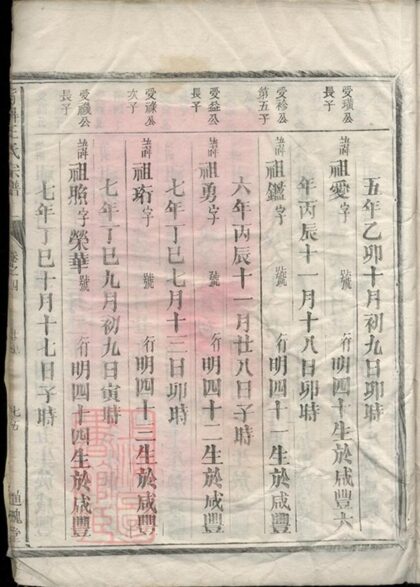 五年乙卯十月初九日卯時
愛璜公
長子
諱祖愛字 號 行明四十生於咸豐六
年丙辰十一月十八日卯時
愛袗公
第五子
諱祖鑑字 號 行明四十一生於咸豐
六年丙辰十一月廿八日子時
愛益公
長子
諱祖勇字 號 行明四十二生於咸豐
七年丁巳七月十三日卯時
愛祿公
次子
諱祖珩字 號 行明四十三生於咸豐
七年丁巳九月初九日寅時
愛禨公
長子
諱祖照字榮華號 行明四十四生於咸豐
七年丁巳十月十七日子時
王氏宗譜 卷之四